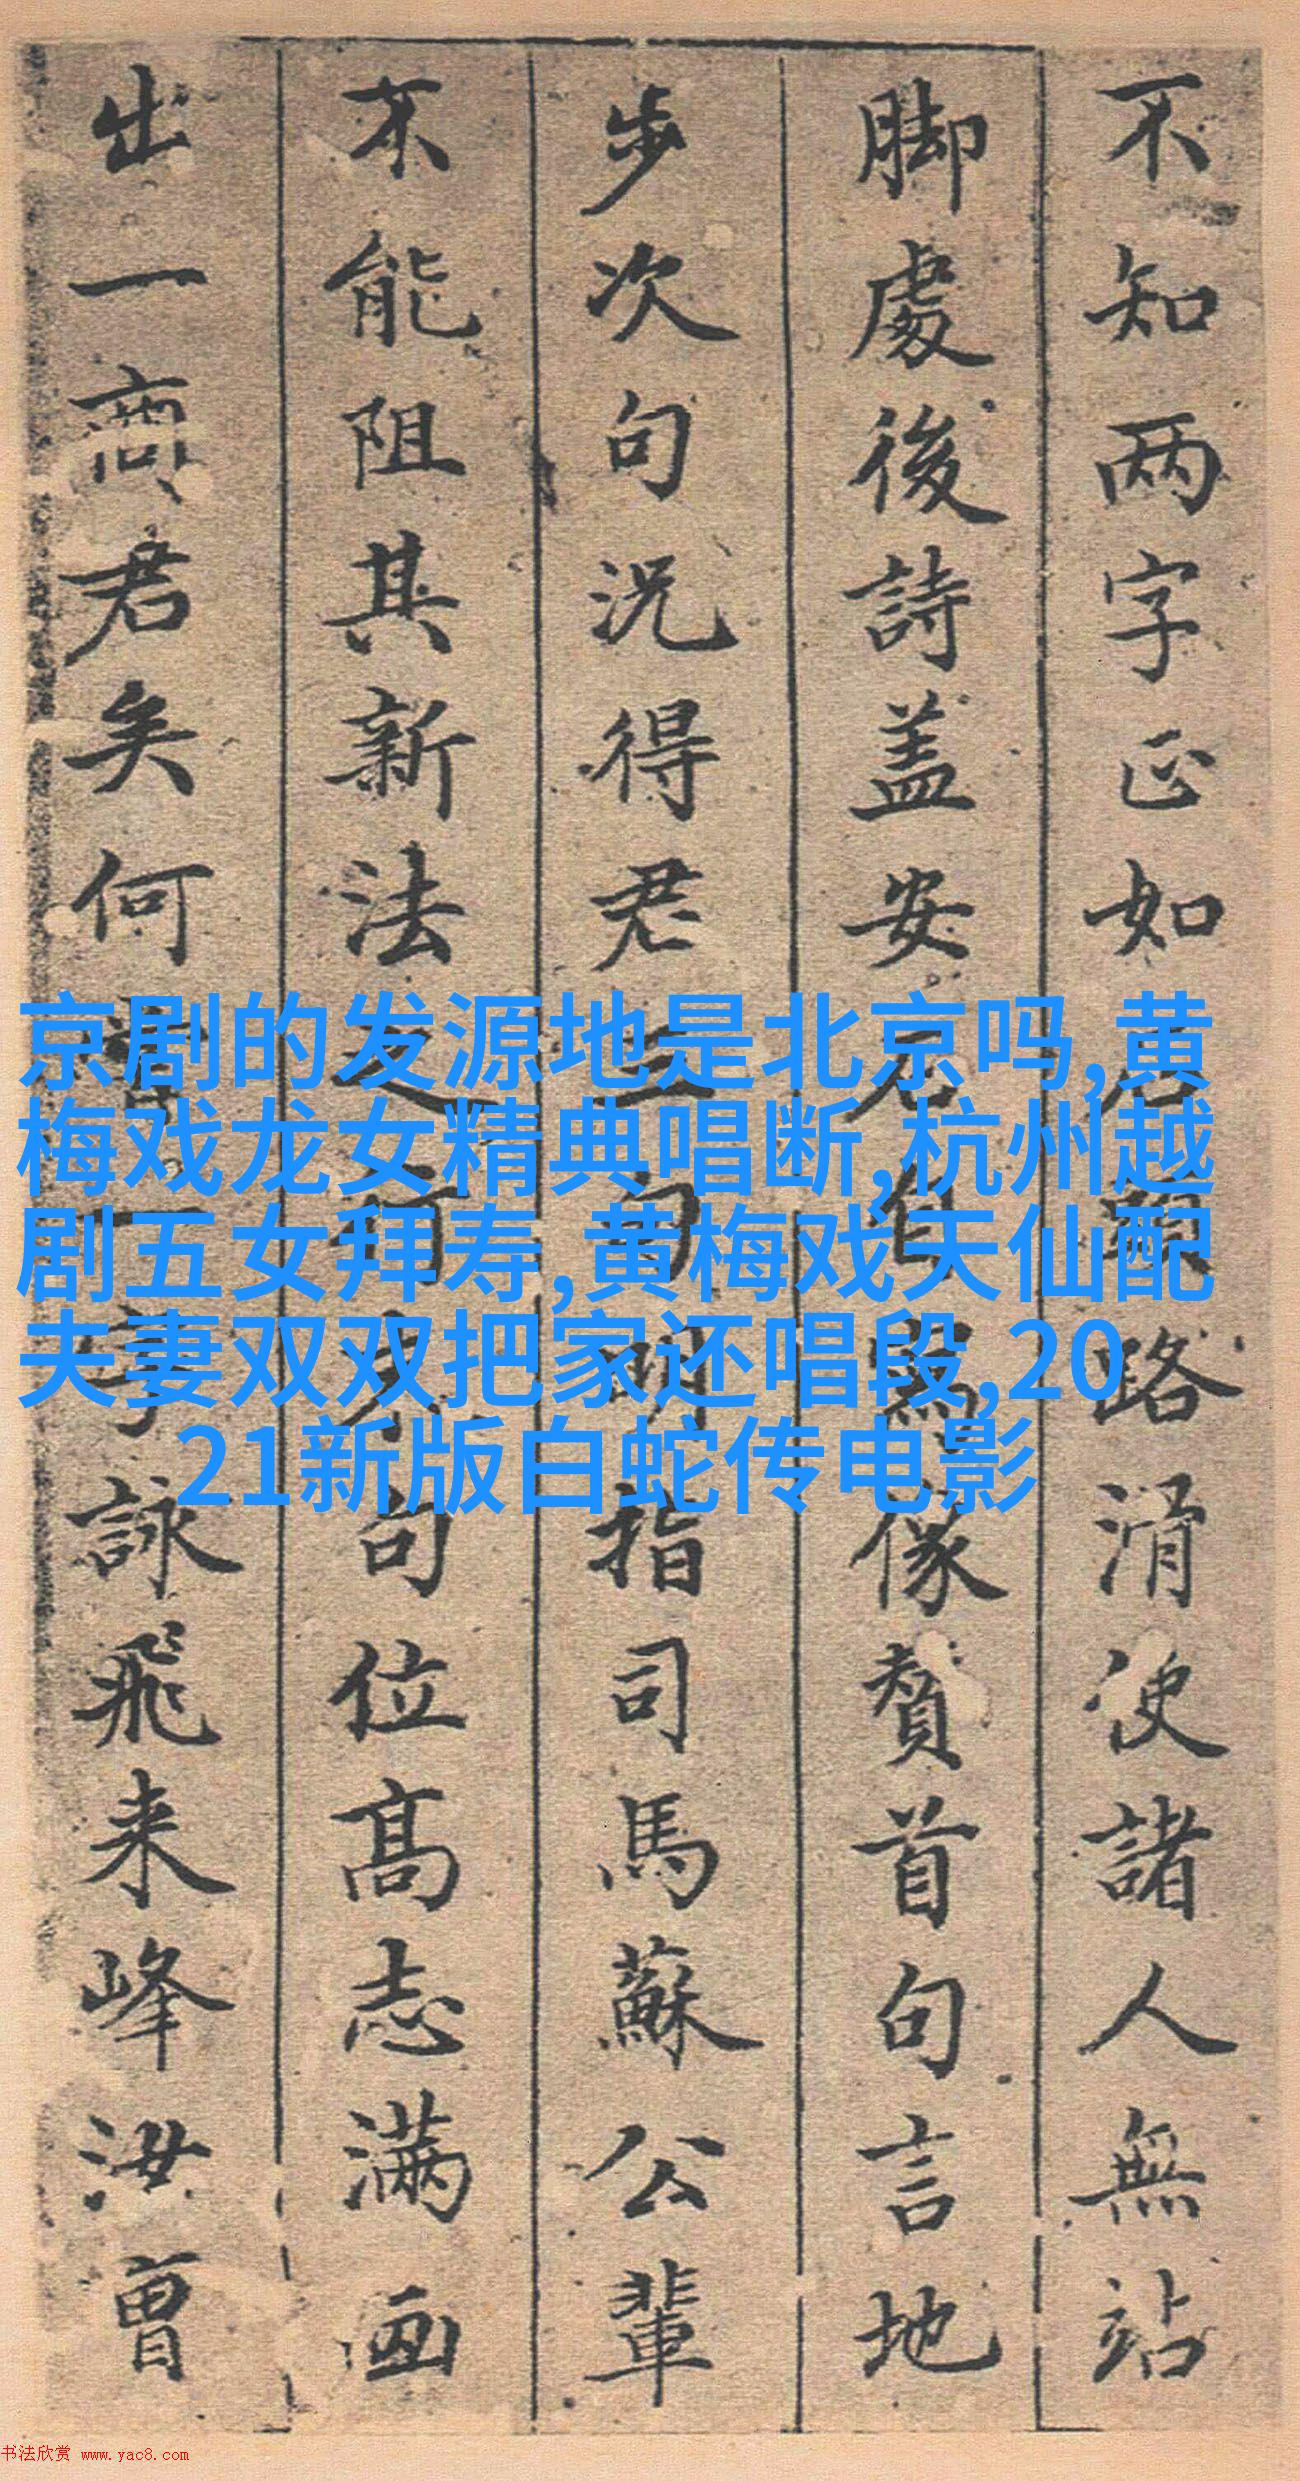 不知两字正如頭路滑使諸人無站
脚處後詩盖安石自寫像賛首句言地
步次句况得君二句明指司馬蘇公輩
不能阻其新法之行末句位高志满画
出一商君矣何一詠飛来峰汝曾
京剧的发源地是北京吗,黄
梅戏龙女精典唱断,杭州越
剧五女拜寿,黄梅戏天仙配
夫妻双双把家还唱段,20
21新版白蛇传电影
书法欣赏 www.yac8.com